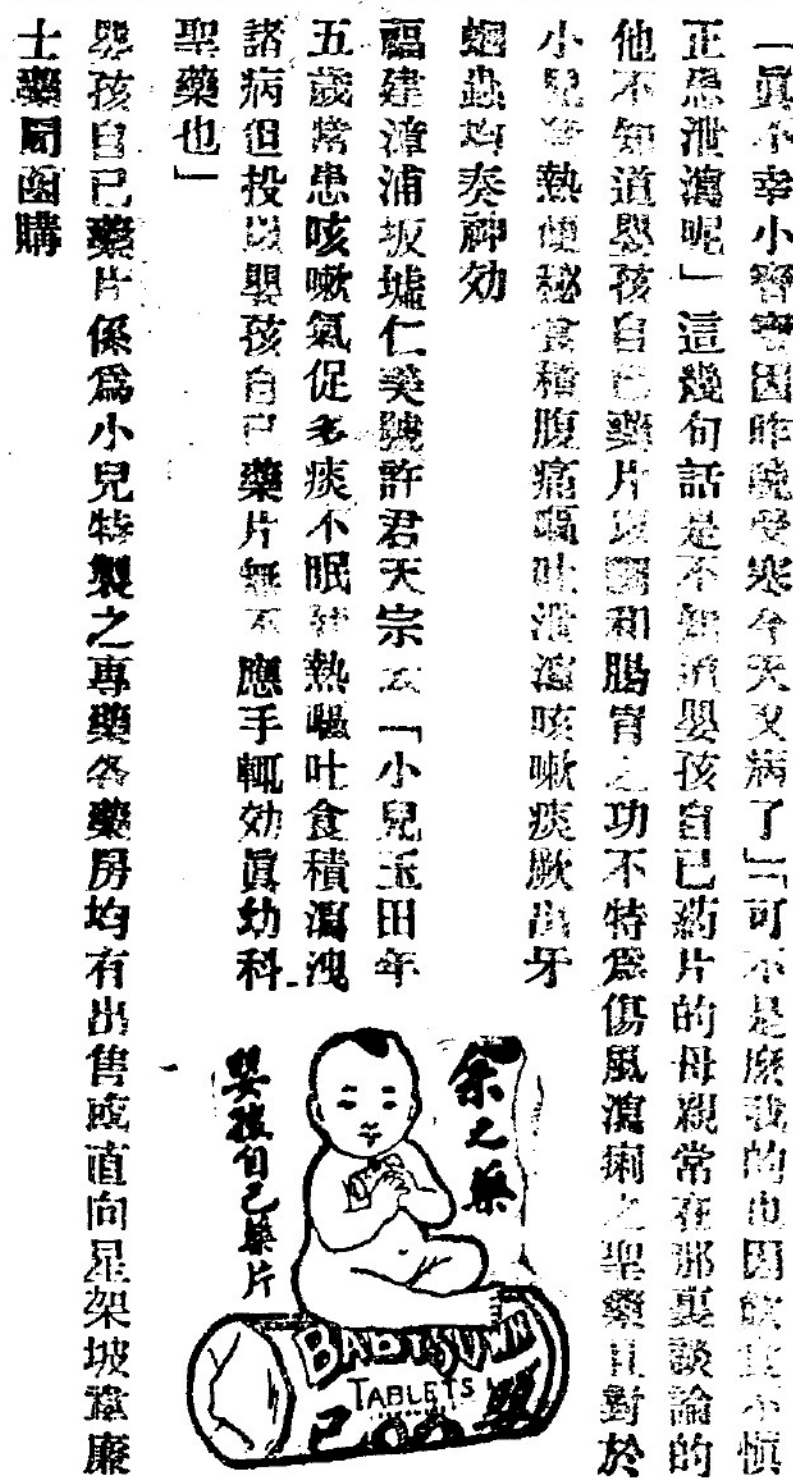 「眞不幸小寶寶因昨晚受寒今天又病了」「可不是麽我的也因飲食不愼
正患泄瀉呢」這幾句話是不知道嬰孩自己葯片的母親常在那裏談論的
他不知道嬰孩自己藥片以調和腸胃之功不特爲傷風瀉痢之聖藥且對於
小兒發熱便秘食積腹痛嘔吐泄瀉咳嗽痰厥出牙
蛔蟲均奏神効
福建漳浦坂墟仁美號許君天宗云「小兒玉田年
五歲常患咳嗽氣促多痰不眠發熱嘔吐食積瀉洩
諸病但投以嬰孩自己藥片無不應手輒効眞幼科
聖藥也」
嬰孩自己藥片係爲小兒特製之專藥各藥房均有出售或直向星架坡韋廉
士藥局函購
余之藥
嬰孩自己藥片
BABY'S OWN
TABLETS